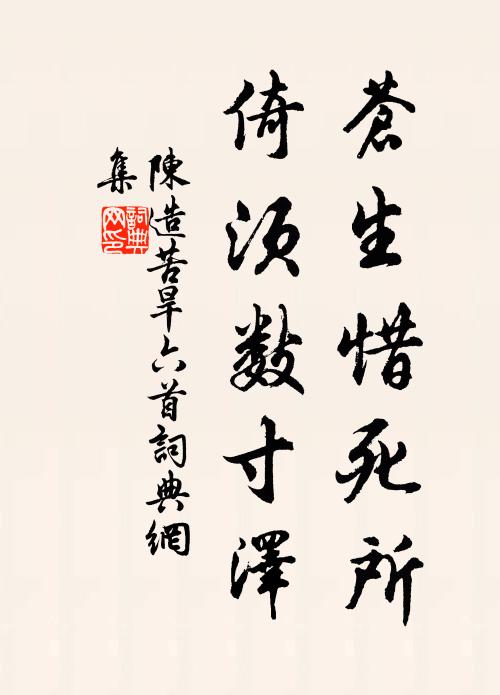 蒼生惜死所
倚須数寸澤
陳造苦旱六首詞典網
集
詞典
网印